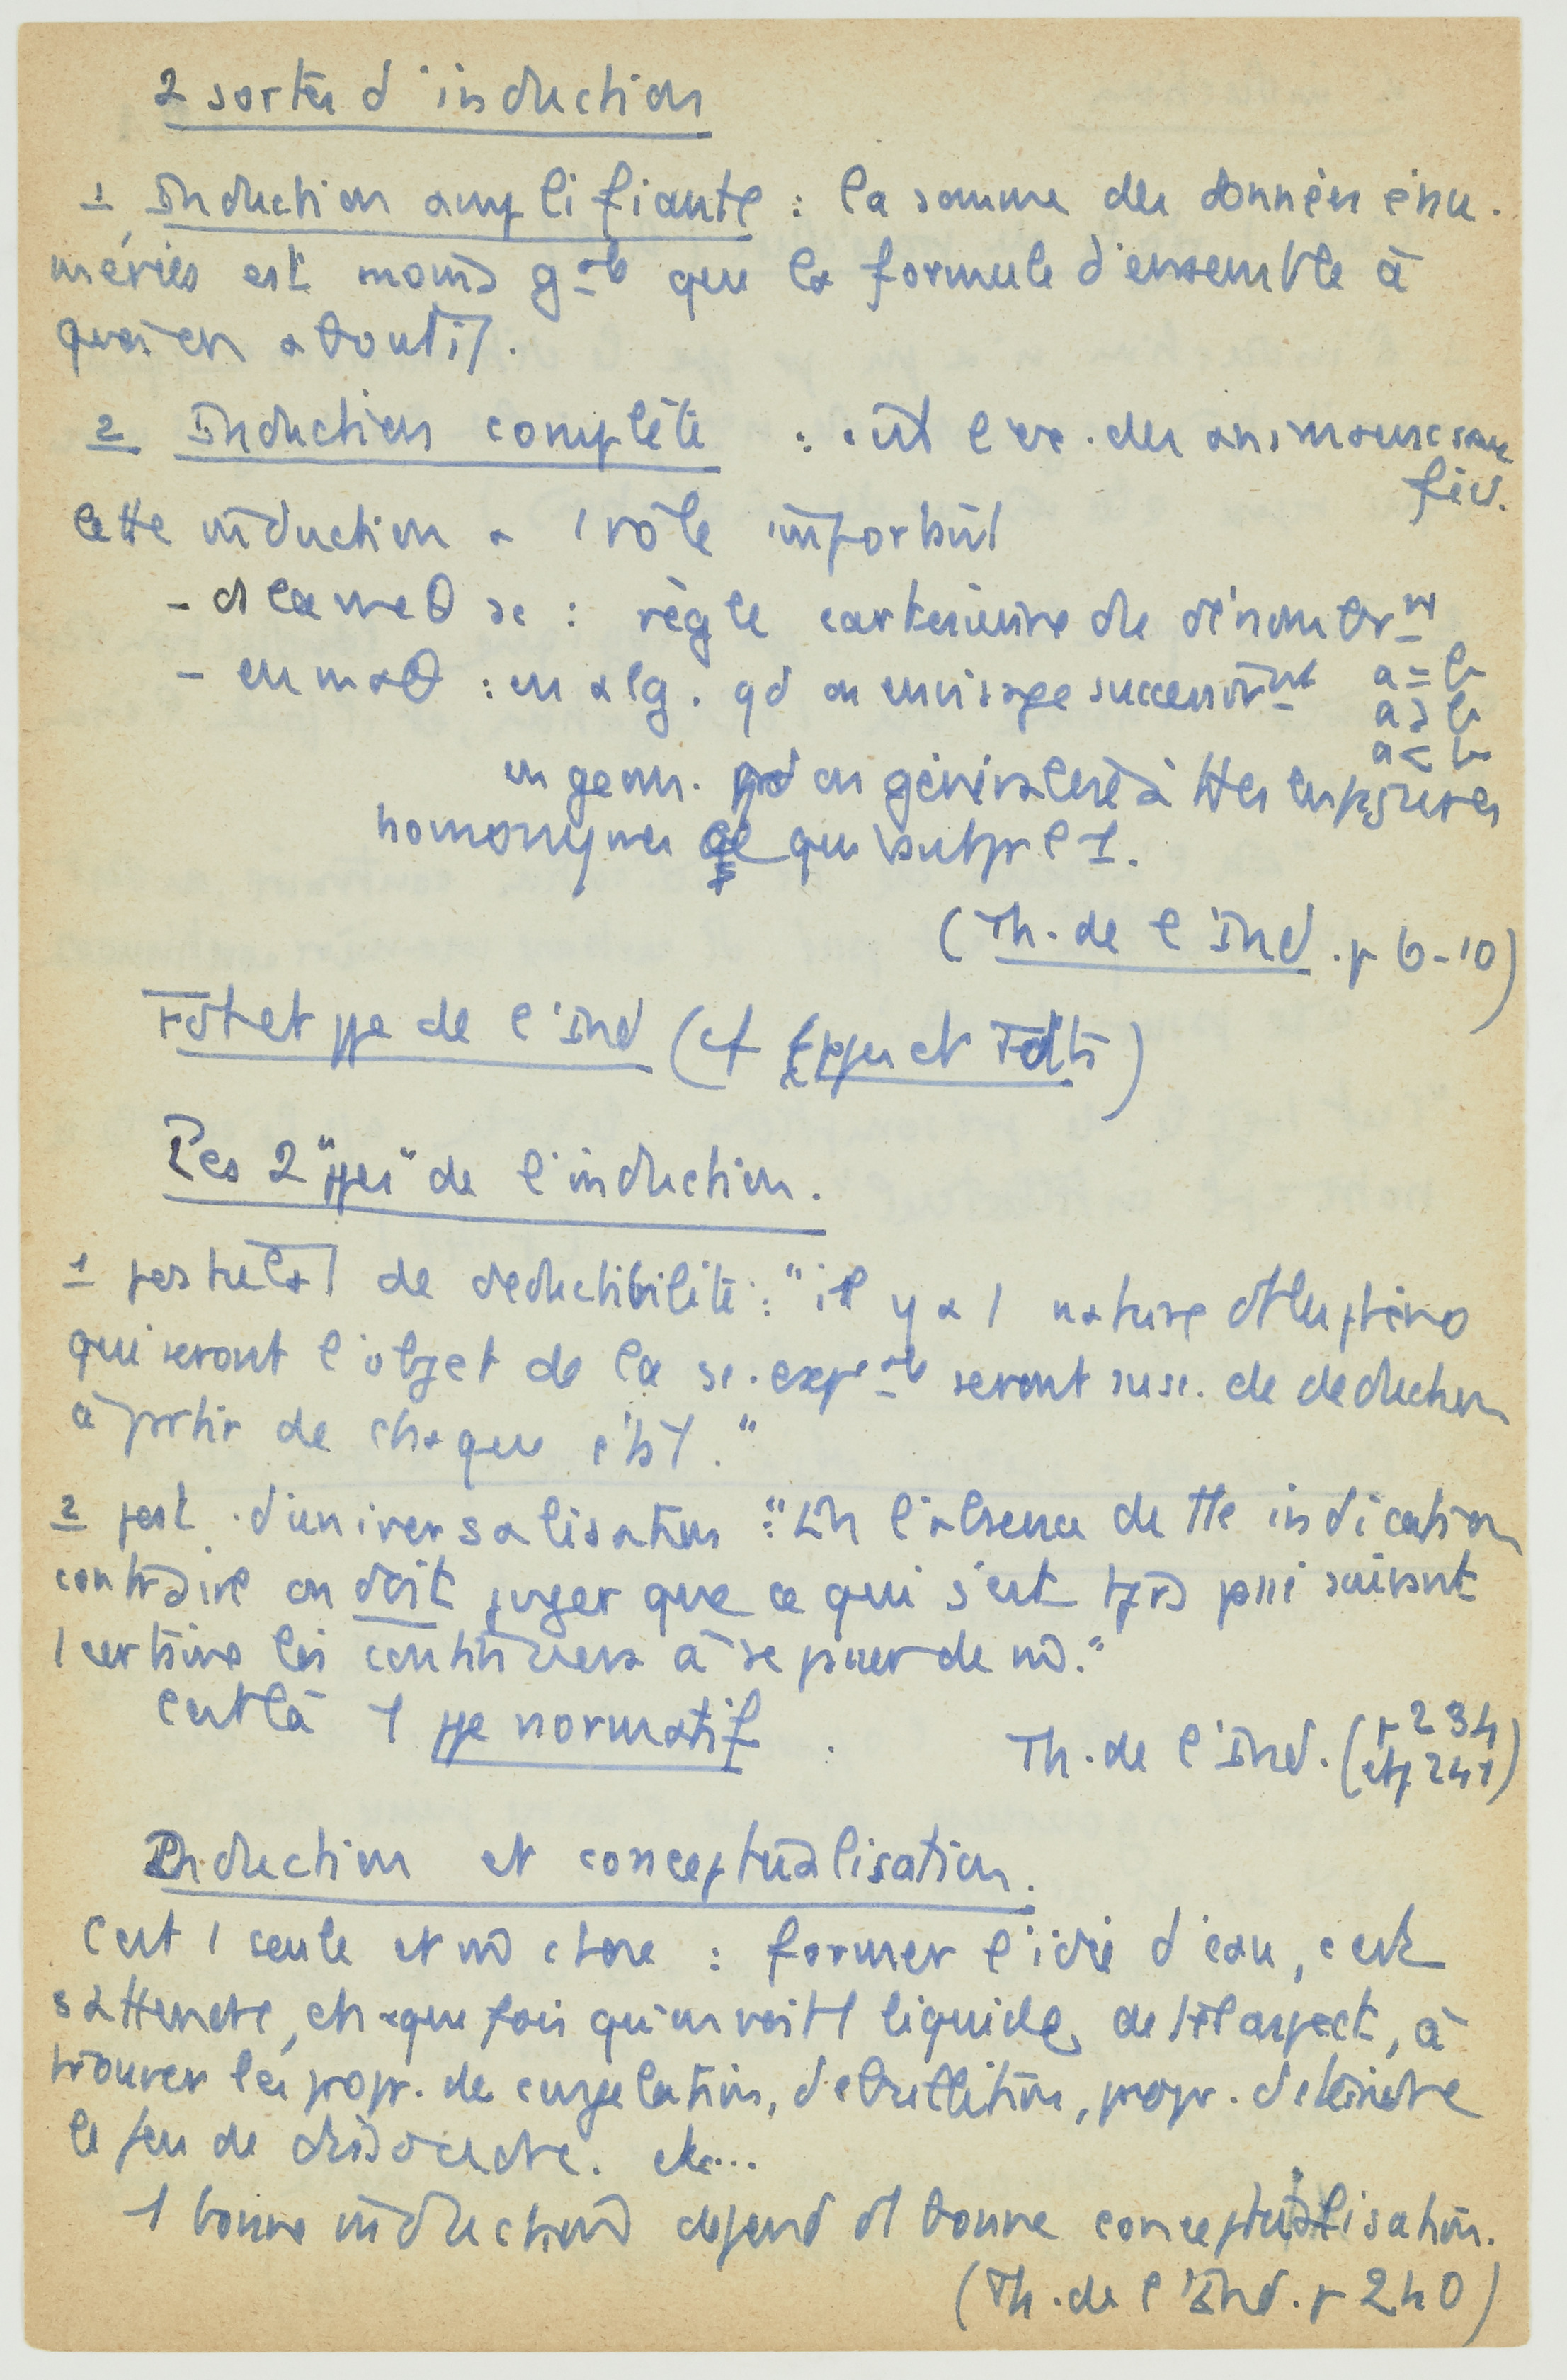 2 sortes d'induction
1 Induction amplifiante : la somme des données énu-
mérées est moins gale que la formule d'ensemble à
quoi on aboutit.
2 Induction complète : c'est l'ex. des animaux sans
fiel.
Cette induction a 1 rôle important
- ds la meθ sc : règle cartésienne du dénombrnt
- en maθ : en alg. qd on envisage successivmt a = b
a > b
a < b
en géom. qd on généralise à ttes les figures
homonymes ce qui vaut pr l'1.
(Th. de l'Ind. p 6-10)
Fdt et ppe de l'Ind (cf Eppes et Fdts)
Les 2 "ppes" de l'induction.
1 postulat de déductibilité : "il y a 1 nature
qui seront l'objet de la sc. expale seront susc. de déduction
à partir de chaque état."
2 post. d'universalisation : "En l'absence de tte indication
contraire on doit juger que ce qui s'est tjrs passé suivant
1 certaine loi continuera à se passer de m̂."
C'est là 1 ppe normatif. Th. de l'Ind. (p 234
et p 241)
Induction et conceptualisation.
C'est 1 seule et m̂ chose : former l'idée d'eau, c'est
s'attendre, chaque fois qu'on voit 1 liquide, de tel aspect, à
trouver les propr. de congélation, d'ébullition, propr. d'éteindre
le feu de dissoudre. etc...
1 bonne induction dépend d'1 bonne conceptualisation.
(Th. de l'Ind. p 240)